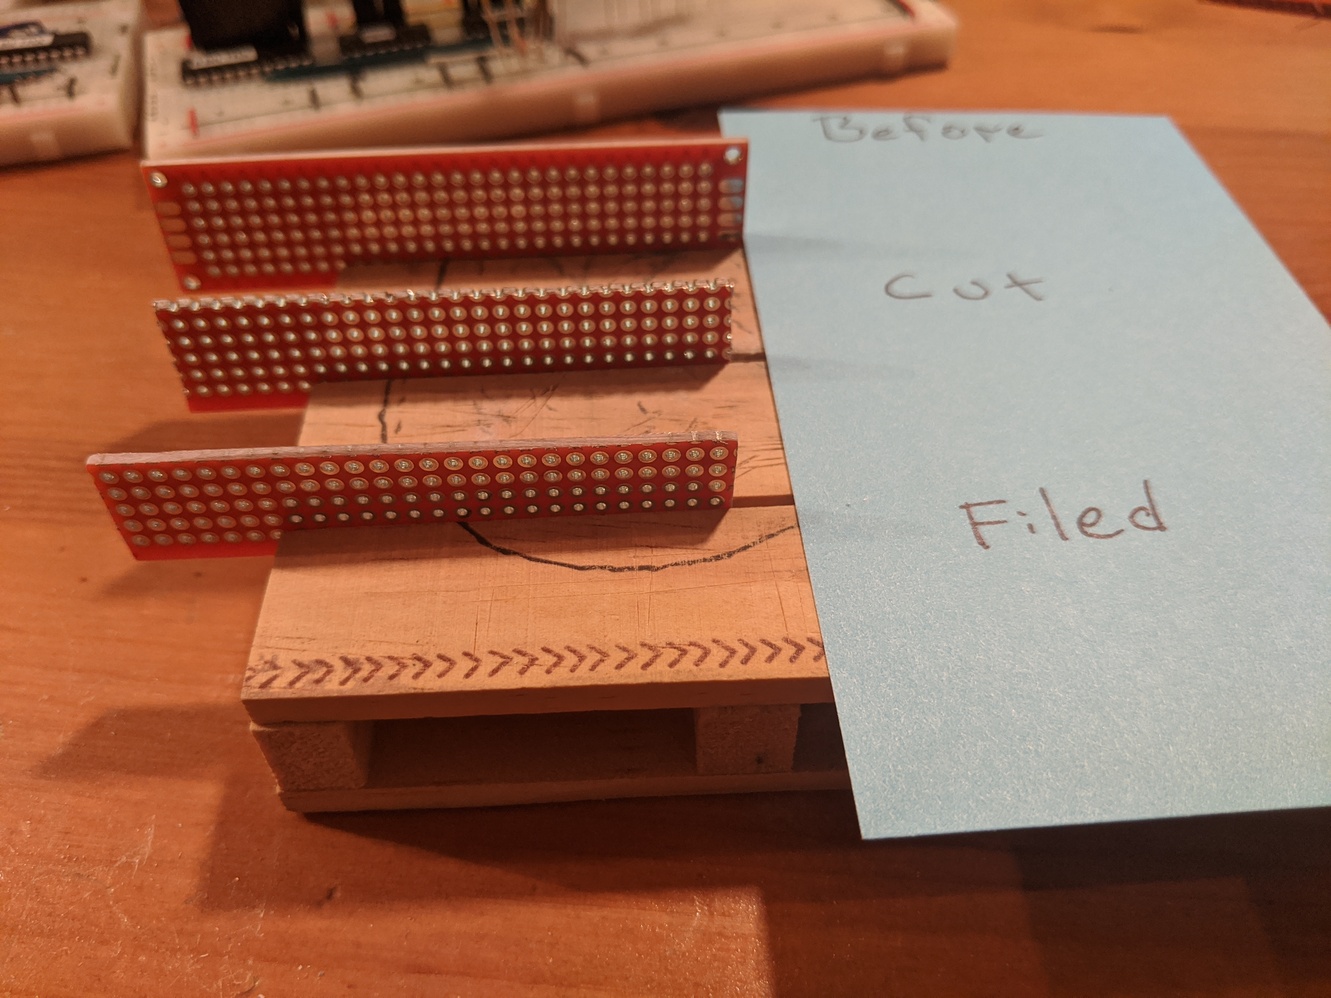 Before
Cut
Filed